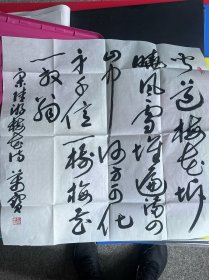 闻道梅花坼
晓风雪堆遍满四
山中何方可化
身千亿一树梅花
一放翁
宋陆游梅花诗